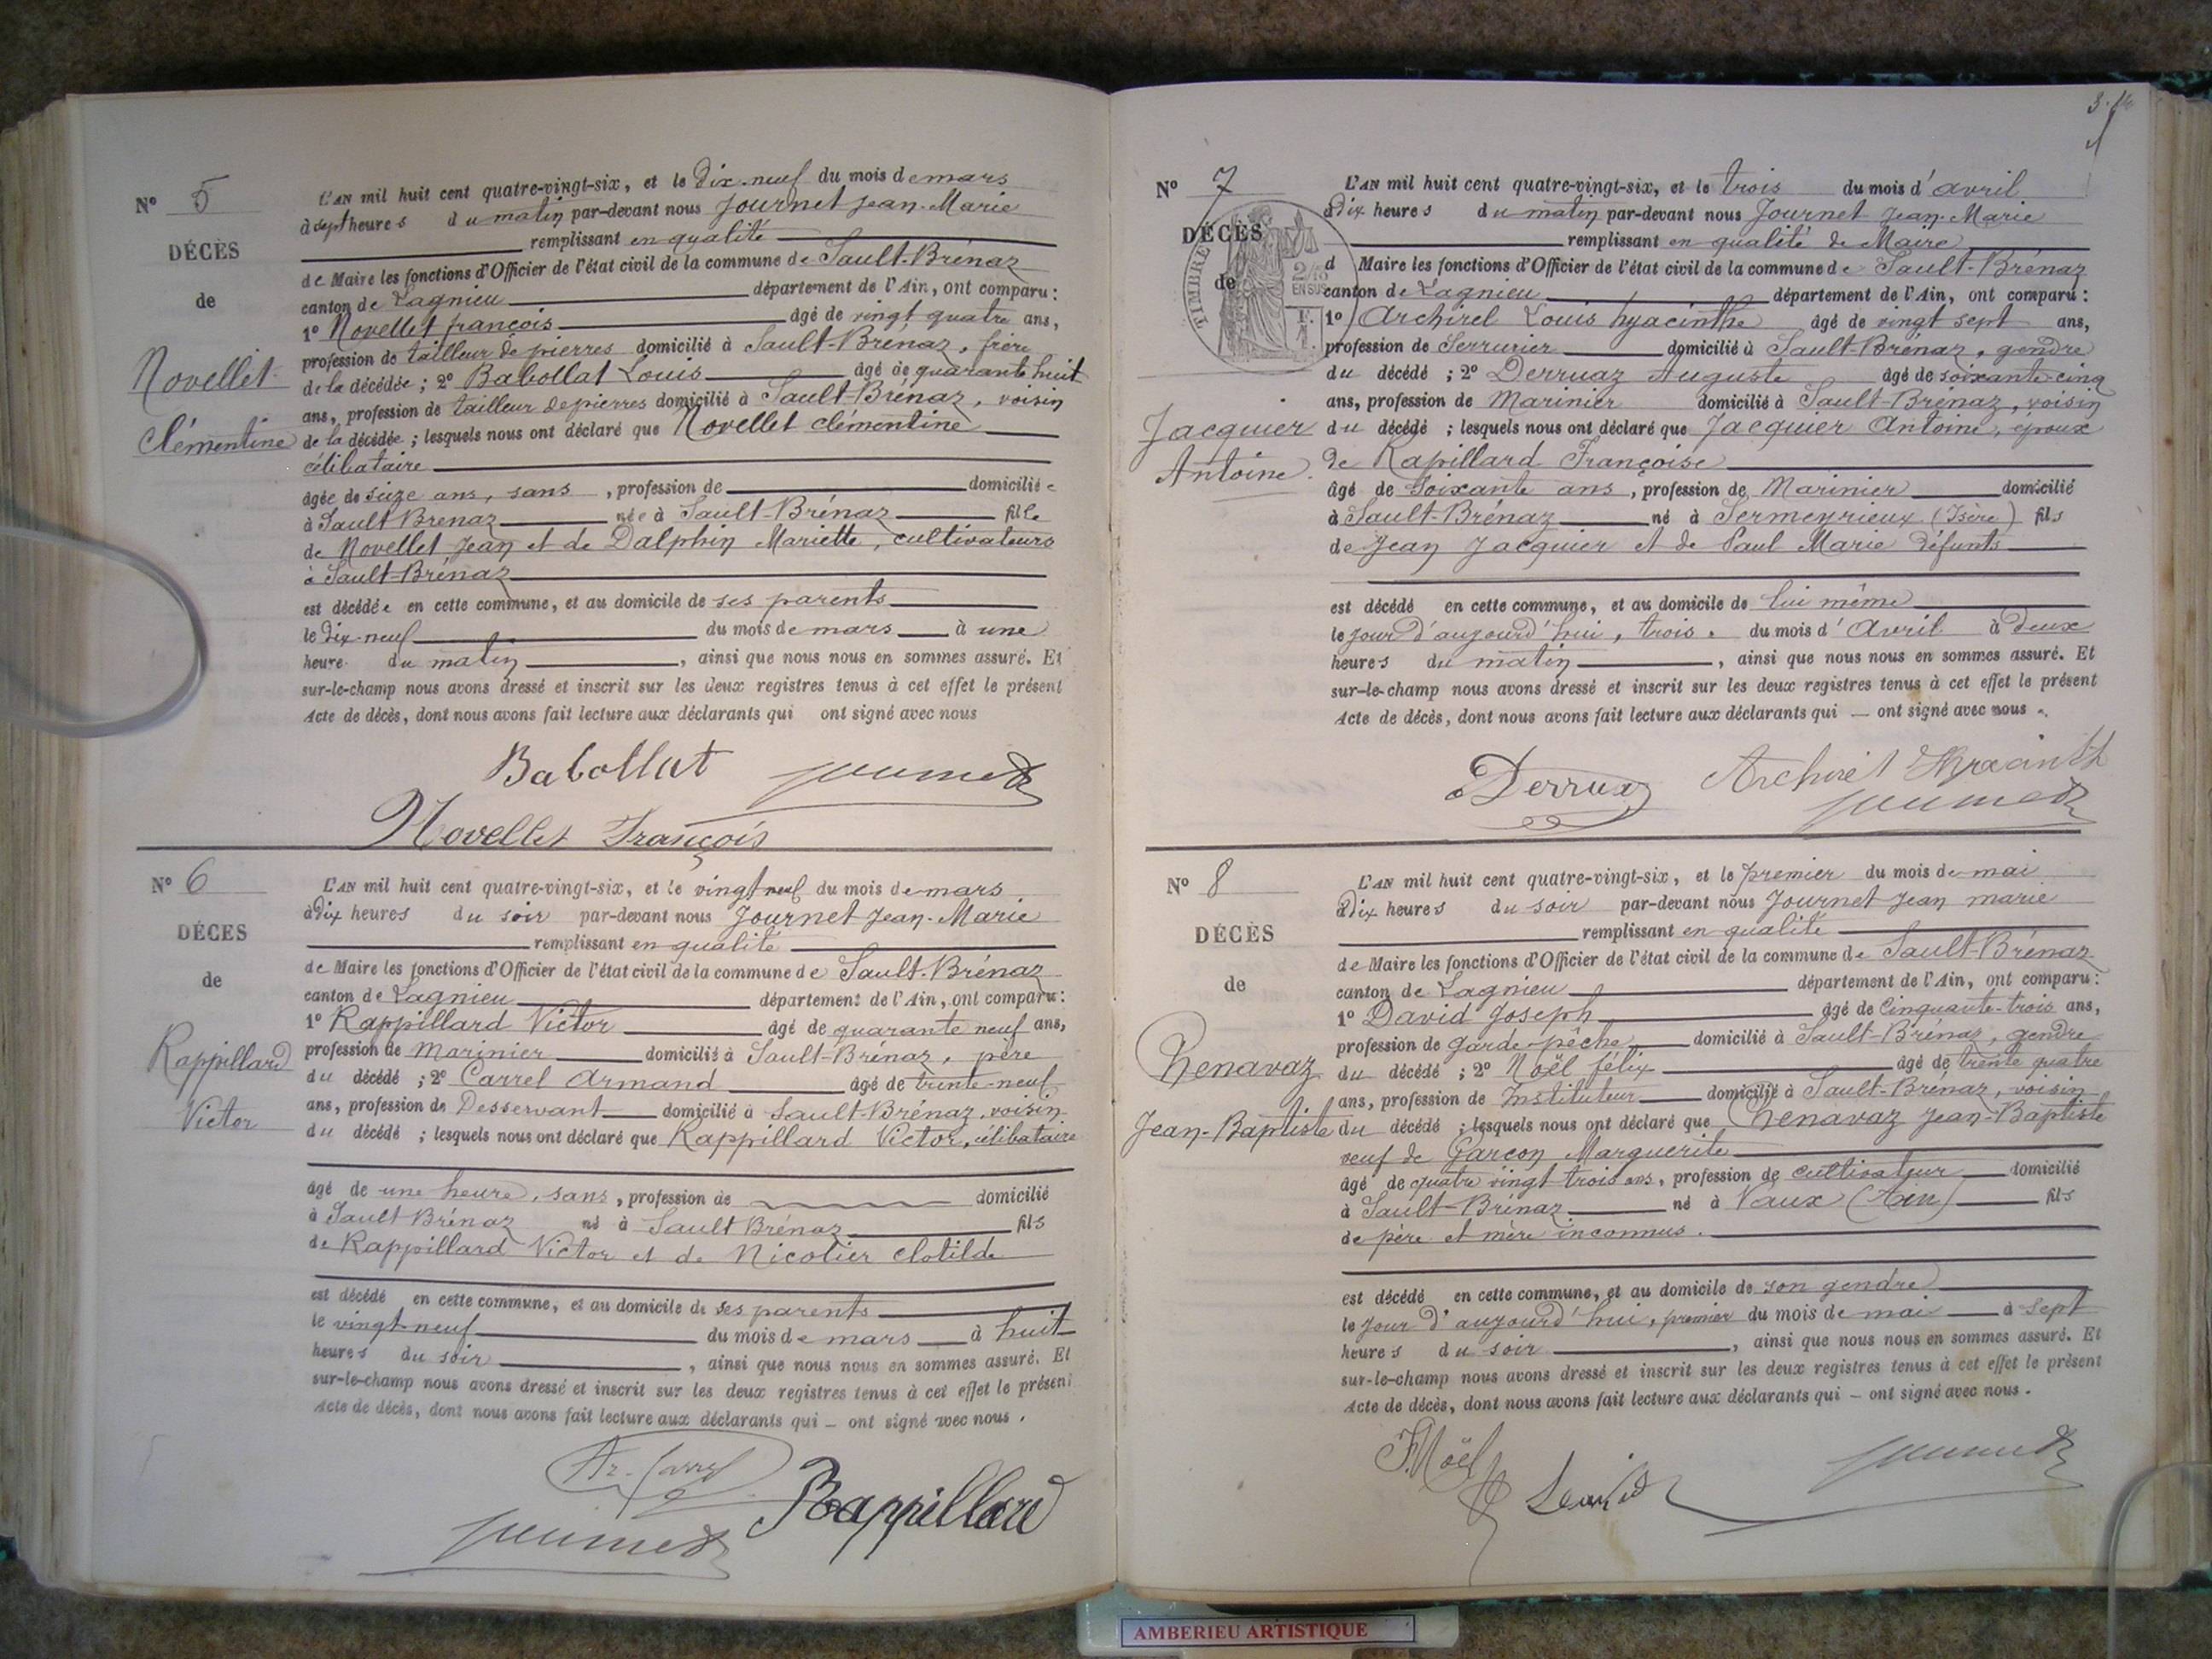 N° 5
DÉCÈS
de
Novellet
Clémentine
L'AN mil huit cent quatre-vingt-six, et le dix-neuf du mois de mars
à sept heures du matin par-devant nous Journet Jean-Marie
remplissant en qualité
de Maire les fonctions d'Officier de l'état civil de la commune de Sault-Brénaz
canton de Lagnieu département de l'Ain, ont comparu:
1° Novellet françois âgé de vingt quatre ans,
profession de tailleur de pierres domicilié à Sault-Brénaz, frère
de la décédée ; 2° Babollat Louis âgé de quarante huit
ans, profession de tailleur de pierres domicilié à Sault-Brénaz, voisin
de la décédée ; lesquels nous ont déclaré que Novellet clémentine
célibataire
âgée de seize ans, sans , profession de domiciliée
à Sault Brenaz née à Sault-Brénaz fille
de Novellet Jean et de Dalphin Mariette, cultivateurs
à Sault-Brénaz
est décédée en cette commune, et au domicile de ses parents
le dix-neuf du mois de mars à une
heure du matin , ainsi que nous nous en sommes assuré. Et
sur-le-champ nous avons dressé et inscrit sur les deux registres tenus à cet effet le présent
Acte de décès, dont nous avons fait lecture aux déclarants qui ont signé avec nous
Babollat Journet
Novellet François
N° 6
DÉCES
de
Rappillard
Victor
L'AN mil huit cent quatre-vingt-six, et le vingt neuf du mois de mars
à dix heures du soir par-devant nous Journet Jean-Marie
remplissant en qualité
de Maire les fonctions d'Officier de l'état civil de la commune de Sault-Brénaz
canton de Lagnieu département de l'Ain, ont comparu:
1° Rappillard Victor âgé de quarante neuf ans,
profession de marinier domicilié à Sault-Brénaz, père
du décédé ; 2° Carrel Armand âgé de trente-neuf
ans, profession de Desservant domicilié à Sault-Brénaz, voisin
du décédé ; lesquels nous ont déclaré que Rappillard Victor, célibataire
âgé de une heure, sans , profession de domicilié
à Sault Brénaz né à Sault Brénaz fils
de Rappillard Victor et de Nicolier Clotilde
est décédé en cette commune, et au domicile de ses parents
le vingt-neuf du mois de mars à huit
heures du soir , ainsi que nous nous en sommes assuré. Et
sur-le-champ nous avons dressé et inscrit sur les deux registres tenus à cet effet le présent
Acte de décès, dont nous avons fait lecture aux déclarants qui — ont signé avec nous .
Ar. Carrel
Rappillard
Journet
N° 7
DÉCÈS
de
TIMBRE
2/10
EN SUS
Jacquier
Antoine.
L'AN mil huit cent quatre-vingt-six, et le trois du mois d'avril
à dix heures du matin par-devant nous Journet Jean-Marie
remplissant en qualité de Maire
d Maire les fonctions d'Officier de l'état civil de la commune de Sault-Brénaz
canton de Lagnieu département de l'Ain, ont comparu :
1° Archirel Louis hyacinthe âgé de vingt sept ans,
profession de Serrurier domicilié à Sault-Brénaz, gendre
du décédé ; 2° Derruaz Auguste âgé de soixante-cinq
ans, profession de Marinier domicilié à Sault-Brénaz, voisin
du décédé ; lesquels nous ont déclaré que Jacquier Antoine, époux
de Rapillard Françoise
âgé de soixante ans , profession de Marinier domicilié
à Sault-Brénaz né à Sermeyrieux (Isère) fils
de Jean Jacquier et de Paul Marie défunts
est décédé en cette commune, et au domicile de lui même
le jour d'aujourd'hui, trois. du mois d'Avril à deux
heures du matin , ainsi que nous nous en sommes assuré. Et
sur-le-champ nous avons dressé et inscrit sur les deux registres tenus à cet effet le présent
Acte de décès, dont nous avons fait lecture aux déclarants qui — ont signé avec nous .
Derruaz Archirel Hyacinth
Journet
N° 8
DÉCÈS
de
Chenavaz
Jean-Baptiste
L'AN mil huit cent quatre-vingt-six, et le premier du mois de mai
à dix heures du soir par-devant nous Journet Jean marie
remplissant en qualité
de Maire les fonctions d'Officier de l'état civil de la commune de Sault-Brénaz
canton de Lagnieu département de l'Ain, ont comparu :
1° David Joseph âgé de Cinquante-trois ans,
profession de garde-pêche domicilié à Sault-Brénaz, gendre
du décédé ; 2° Noël félix âgé de trente quatre
ans, profession de Instituteur domicilié à Sault-Brénaz, voisin
du décédé ; lesquels nous ont déclaré que Chenavaz Jean-Baptiste
veuf de Garcon Marguerite
âgé de quatre vingt trois ans, profession de cultivateur domicilié
à Sault-Brénaz né à Vaux (Ain) fils
de père et mère inconnus.
est décédé en cette commune, et au domicile de son gendre
le jour d'aujourd'hui, premier du mois de mai à sept
heures du soir , ainsi que nous nous en sommes assuré. Et
sur-le-champ nous avons dressé et inscrit sur les deux registres tenus à cet effet le présent
Acte de décès, dont nous avons fait lecture aux déclarants qui — ont signé avec nous .
F. Noël Journet
David
AMBERIEU ARTISTIQUE